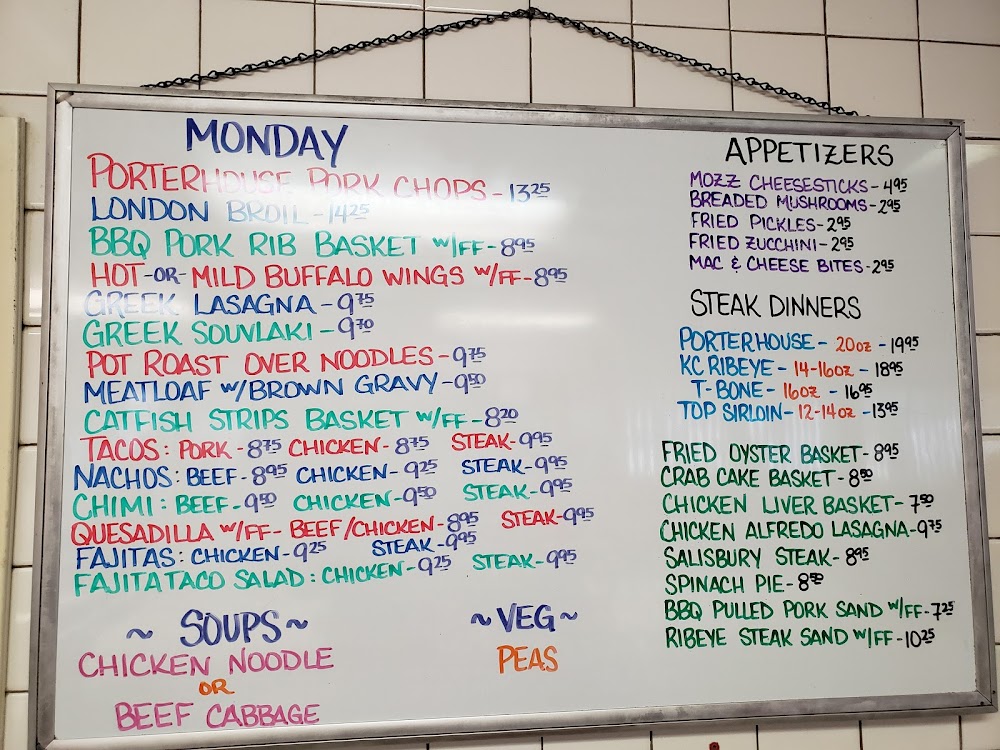 MONDAY
PORTERHOUSE PORK CHOPS - 13.25
LONDON BROIL - 14.25
BBQ PORK RIB BASKET W/FF - 8.95
HOT -OR- MILD BUFFALO WINGS W/FF - 8.95
GREEK LASAGNA - 9.75
GREEK SOUVLAKI - 9.70
POT ROAST OVER NOODLES - 9.75
MEATLOAF W/BROWN GRAVY - 9.50
CATFISH STRIPS BASKET W/FF - 8.20
TACOS: PORK - 8.75 CHICKEN - 8.75 STEAK - 9.95
NACHOS: BEEF - 8.95 CHICKEN - 9.25 STEAK - 9.95
CHIMI: BEEF - 9.50 CHICKEN - 9.50 STEAK - 9.95
QUESADILLA W/FF - BEEF/CHICKEN - 8.95 STEAK - 9.95
FAJITAS: CHICKEN - 9.25 STEAK - 9.95
FAJITA TACO SALAD: CHICKEN - 9.25 STEAK - 9.95
~ SOUPS ~
CHICKEN NOODLE
OR
BEEF CABBAGE
~ VEG ~
PEAS
APPETIZERS
MOZZ CHEESESTICKS - 4.95
BREADED MUSHROOMS - 2.95
FRIED PICKLES - 2.95
FRIED ZUCCHINI - 2.95
MAC & CHEESE BITES - 2.95
STEAK DINNERS
PORTERHOUSE - 20oz - 19.95
KC RIBEYE - 14-16oz - 18.95
T-BONE - 16oz - 16.95
TOP SIRLOIN - 12-14oz - 13.95
FRIED OYSTER BASKET - 8.95
CRAB CAKE BASKET - 8.50
CHICKEN LIVER BASKET - 7.50
CHICKEN ALFREDO LASAGNA - 9.75
SALISBURY STEAK - 8.95
SPINACH PIE - 8.50
BBQ PULLED PORK SAND W/FF - 7.25
RIBEYE STEAK SAND W/FF - 10.25